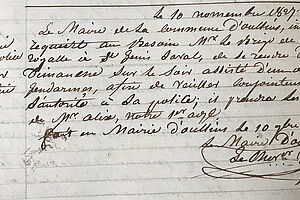 le 10 novembre 1837.
Le Maire de la Commune d'oullins, in
requert au besoin Mr. le Brig de
royalle à St Genis Laval, de se rendre
Dimanche sur le soir assisté d'un
Gendarmes, afin de veiller conjointem
l'autorité à la police; il prendra les
de Mr. aîné, notre 1er adj.
fait en Mairie d'oullins le 10 9bre
Le Maire d'ou
Le Chevr